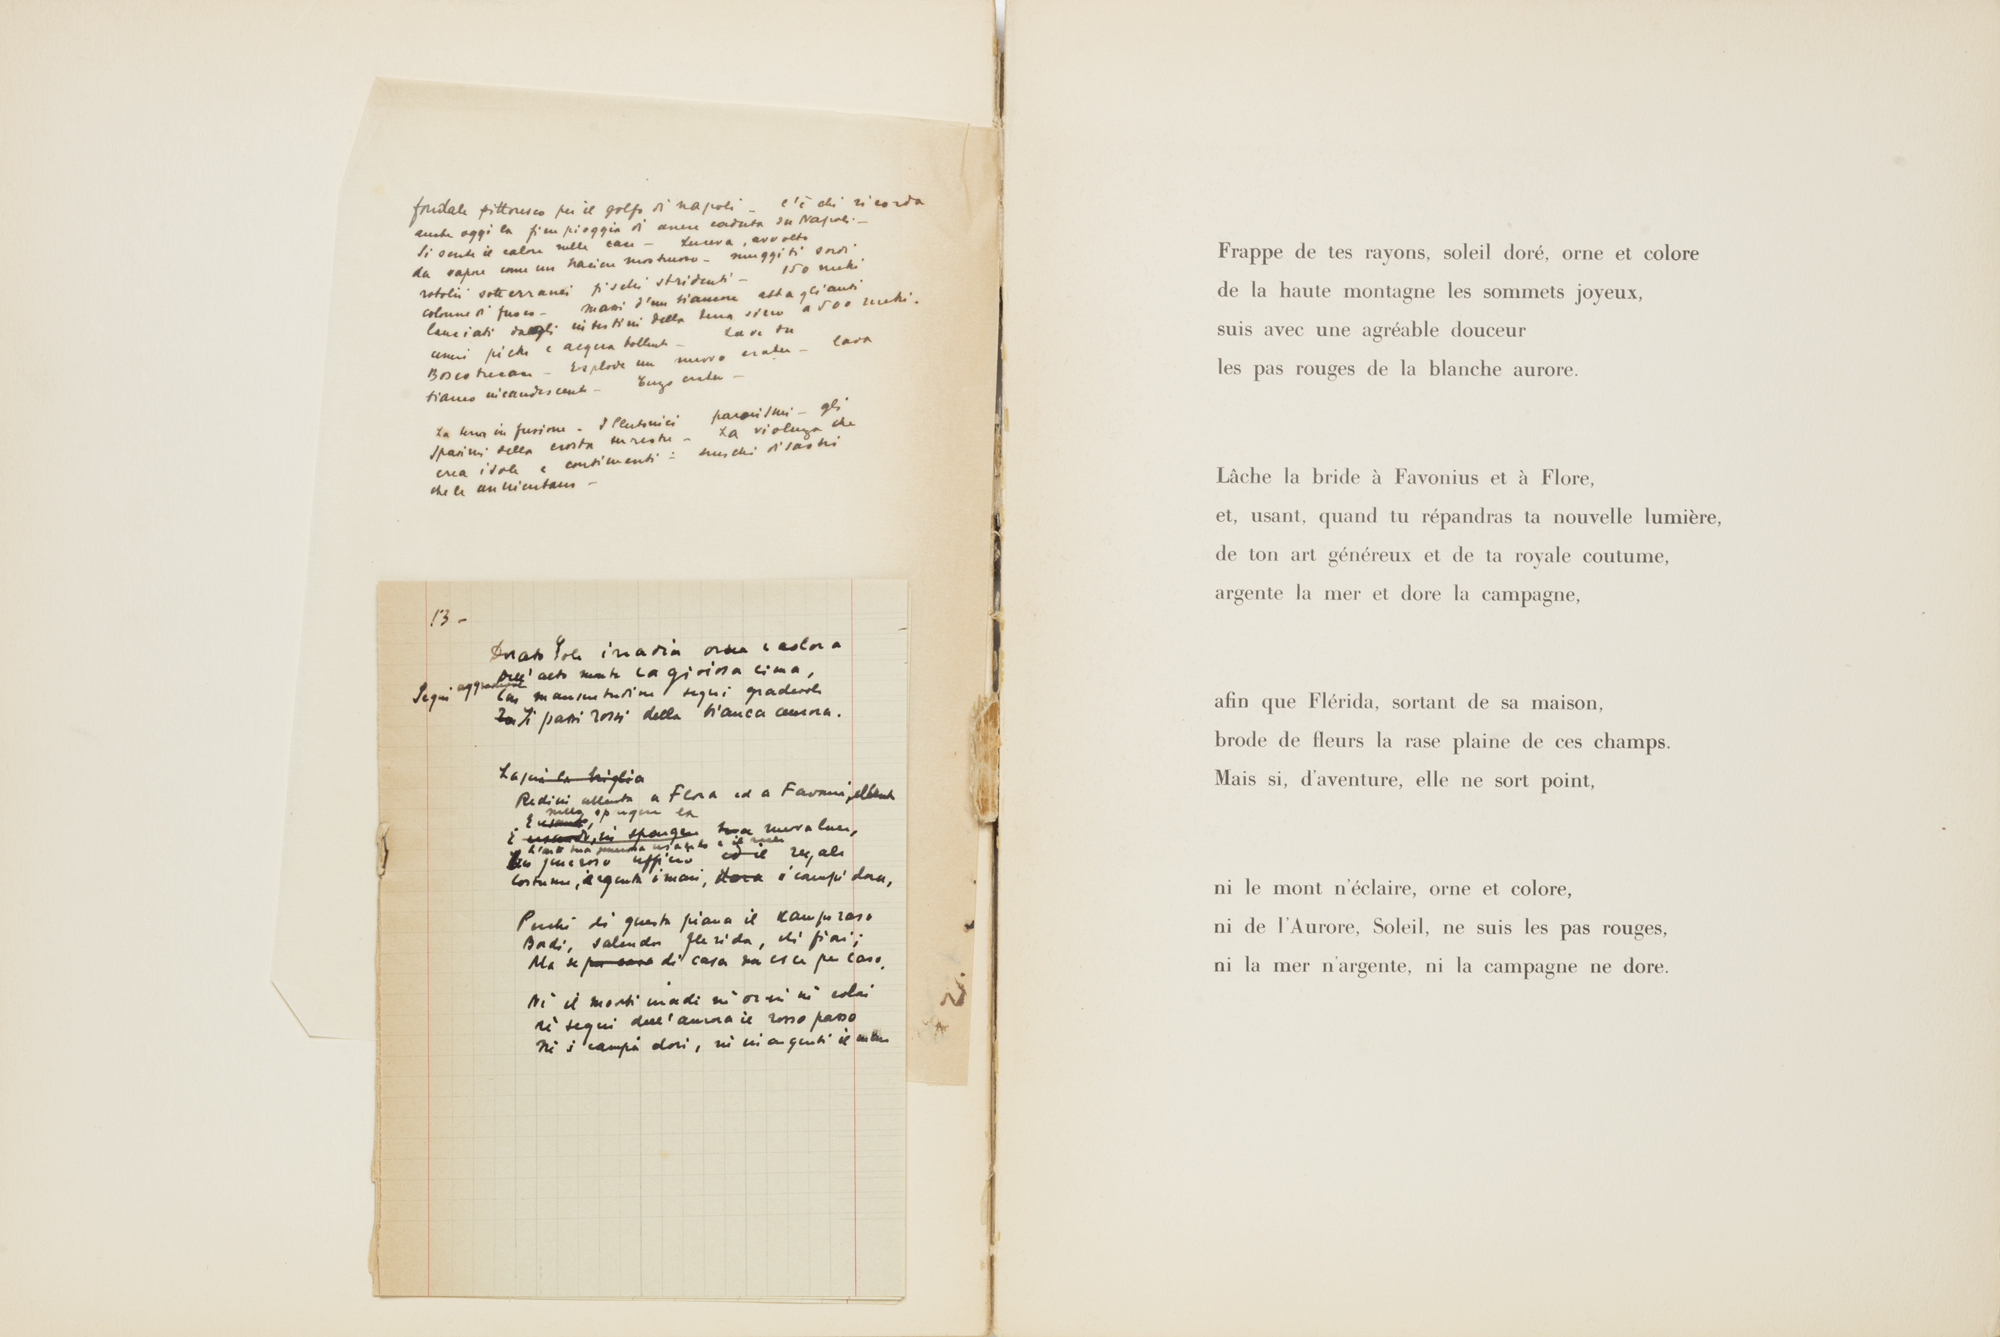 fondale pittoresco per il golfo di Napoli – c'è chi ricorda
anche oggi la fine pioggia di cenere caduta su Napoli –
si sente il calore nelle case –
da vapore come un mostruoso – muggiti sordi
sotterranei fischi stridenti – 150 metri
colonne di fuoco –
lanciati dagli intestini della terra a 500 metri.
e acqua bollente –
Boscotrecase – Esplode un nuovo cratere – lava
bianco incandescente – Terzo cratere –
La terra in fusione – I Plutonici parossismi – gli
spasimi della crosta terrestre – La violenza che
crea isole e continenti : disastri
che le annientano –
13 –
Dorato Sole irradia orna e colora
Dell'alto monte la gioiosa cima,
Segui aggradevole
Con mansuetudine segui gradevole
I passi rossi della bianca aurora.
Lascia la briglia
Redini allenta a Flora ed a Favonio,
E spargere la
E nuova luce,
generoso ufficio ed il regale
costume, argenta i mari, dora i campi dora,
Perché di questa piana il campo raso
Bordi, salendo Flerida, di fiori;
Ma se di casa non esce per caso,
Né il monte irradi né orni né colori
né segui dell'aurora il rosso passo
Né i campi dori, né inargenti il mare
Frappe de tes rayons, soleil doré, orne et colore
de la haute montagne les sommets joyeux,
suis avec une agréable douceur
les pas rouges de la blanche aurore.
Lâche la bride à Favonius et à Flore,
et, usant, quand tu répandras ta nouvelle lumière,
de ton art généreux et de ta royale coutume,
argente la mer et dore la campagne,
afin que Flérida, sortant de sa maison,
brode de fleurs la rase plaine de ces champs.
Mais si, d'aventure, elle ne sort point,
ni le mont n'éclaire, orne et colore,
ni de l'Aurore, Soleil, ne suis les pas rouges,
ni la mer n'argente, ni la campagne ne dore.